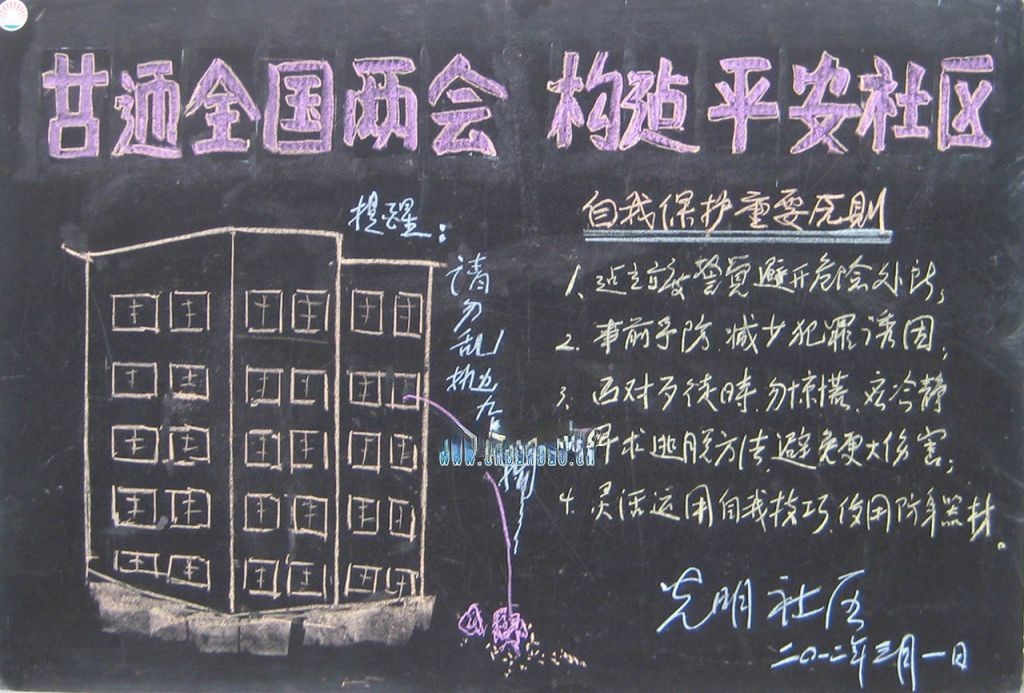 喜迎全国两会 构造平安社区
提醒：
请勿乱
自我保护重要原则
1、近立放警觉避开危险处所；
2. 事前予防、减少犯罪诱因；
3、面对歹徒時、勿惊慌、应冷静
寻求逃脱方法、避免更大伤害；
4. 灵活运用自我技巧、使用防身器材。
光明社区
二〇一二年三月一日